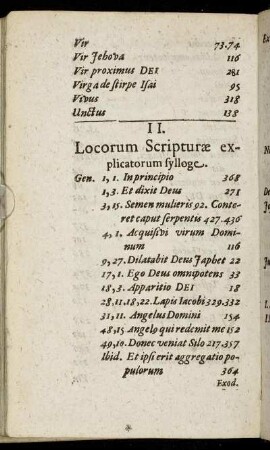 Vir 73.74
Vir Jehova 116
Vir proximus DEI 281
Virga de stirpe Isai 95
Vivus 318
Unctus 138
II.
Locorum Scripturæ ex-
plicatorum sylloge.
Gen. 1, 1. In principio 368
1, 3. Et dixit Deus 271
3, 15. Semen mulieris 92. Conte-
ret caput serpentis 427.436
4, 1. Acquisivi virum Domi-
num 116
9, 27. Dilatabit Deus Japhet 22
17, 1. Ego Deus omnipotens 33
18, 3. Apparitio DEI 18
28, 11.18, 22. Lapis Iacobi 329.332
31, 11. Angelus Domini 154
48, 15 Angelo qui redemit me 152
49, 10. Donec veniat Silo 217.357
Ibid. Et ipsi erit aggregatio po-
pulorum 364
Exod.